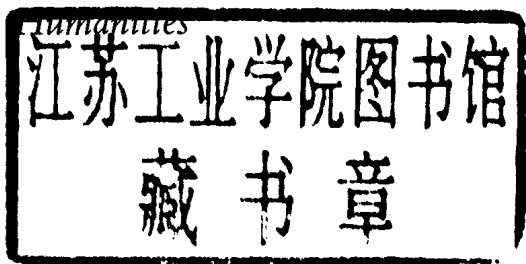 Humanities
江苏工业学院图书馆
藏书章